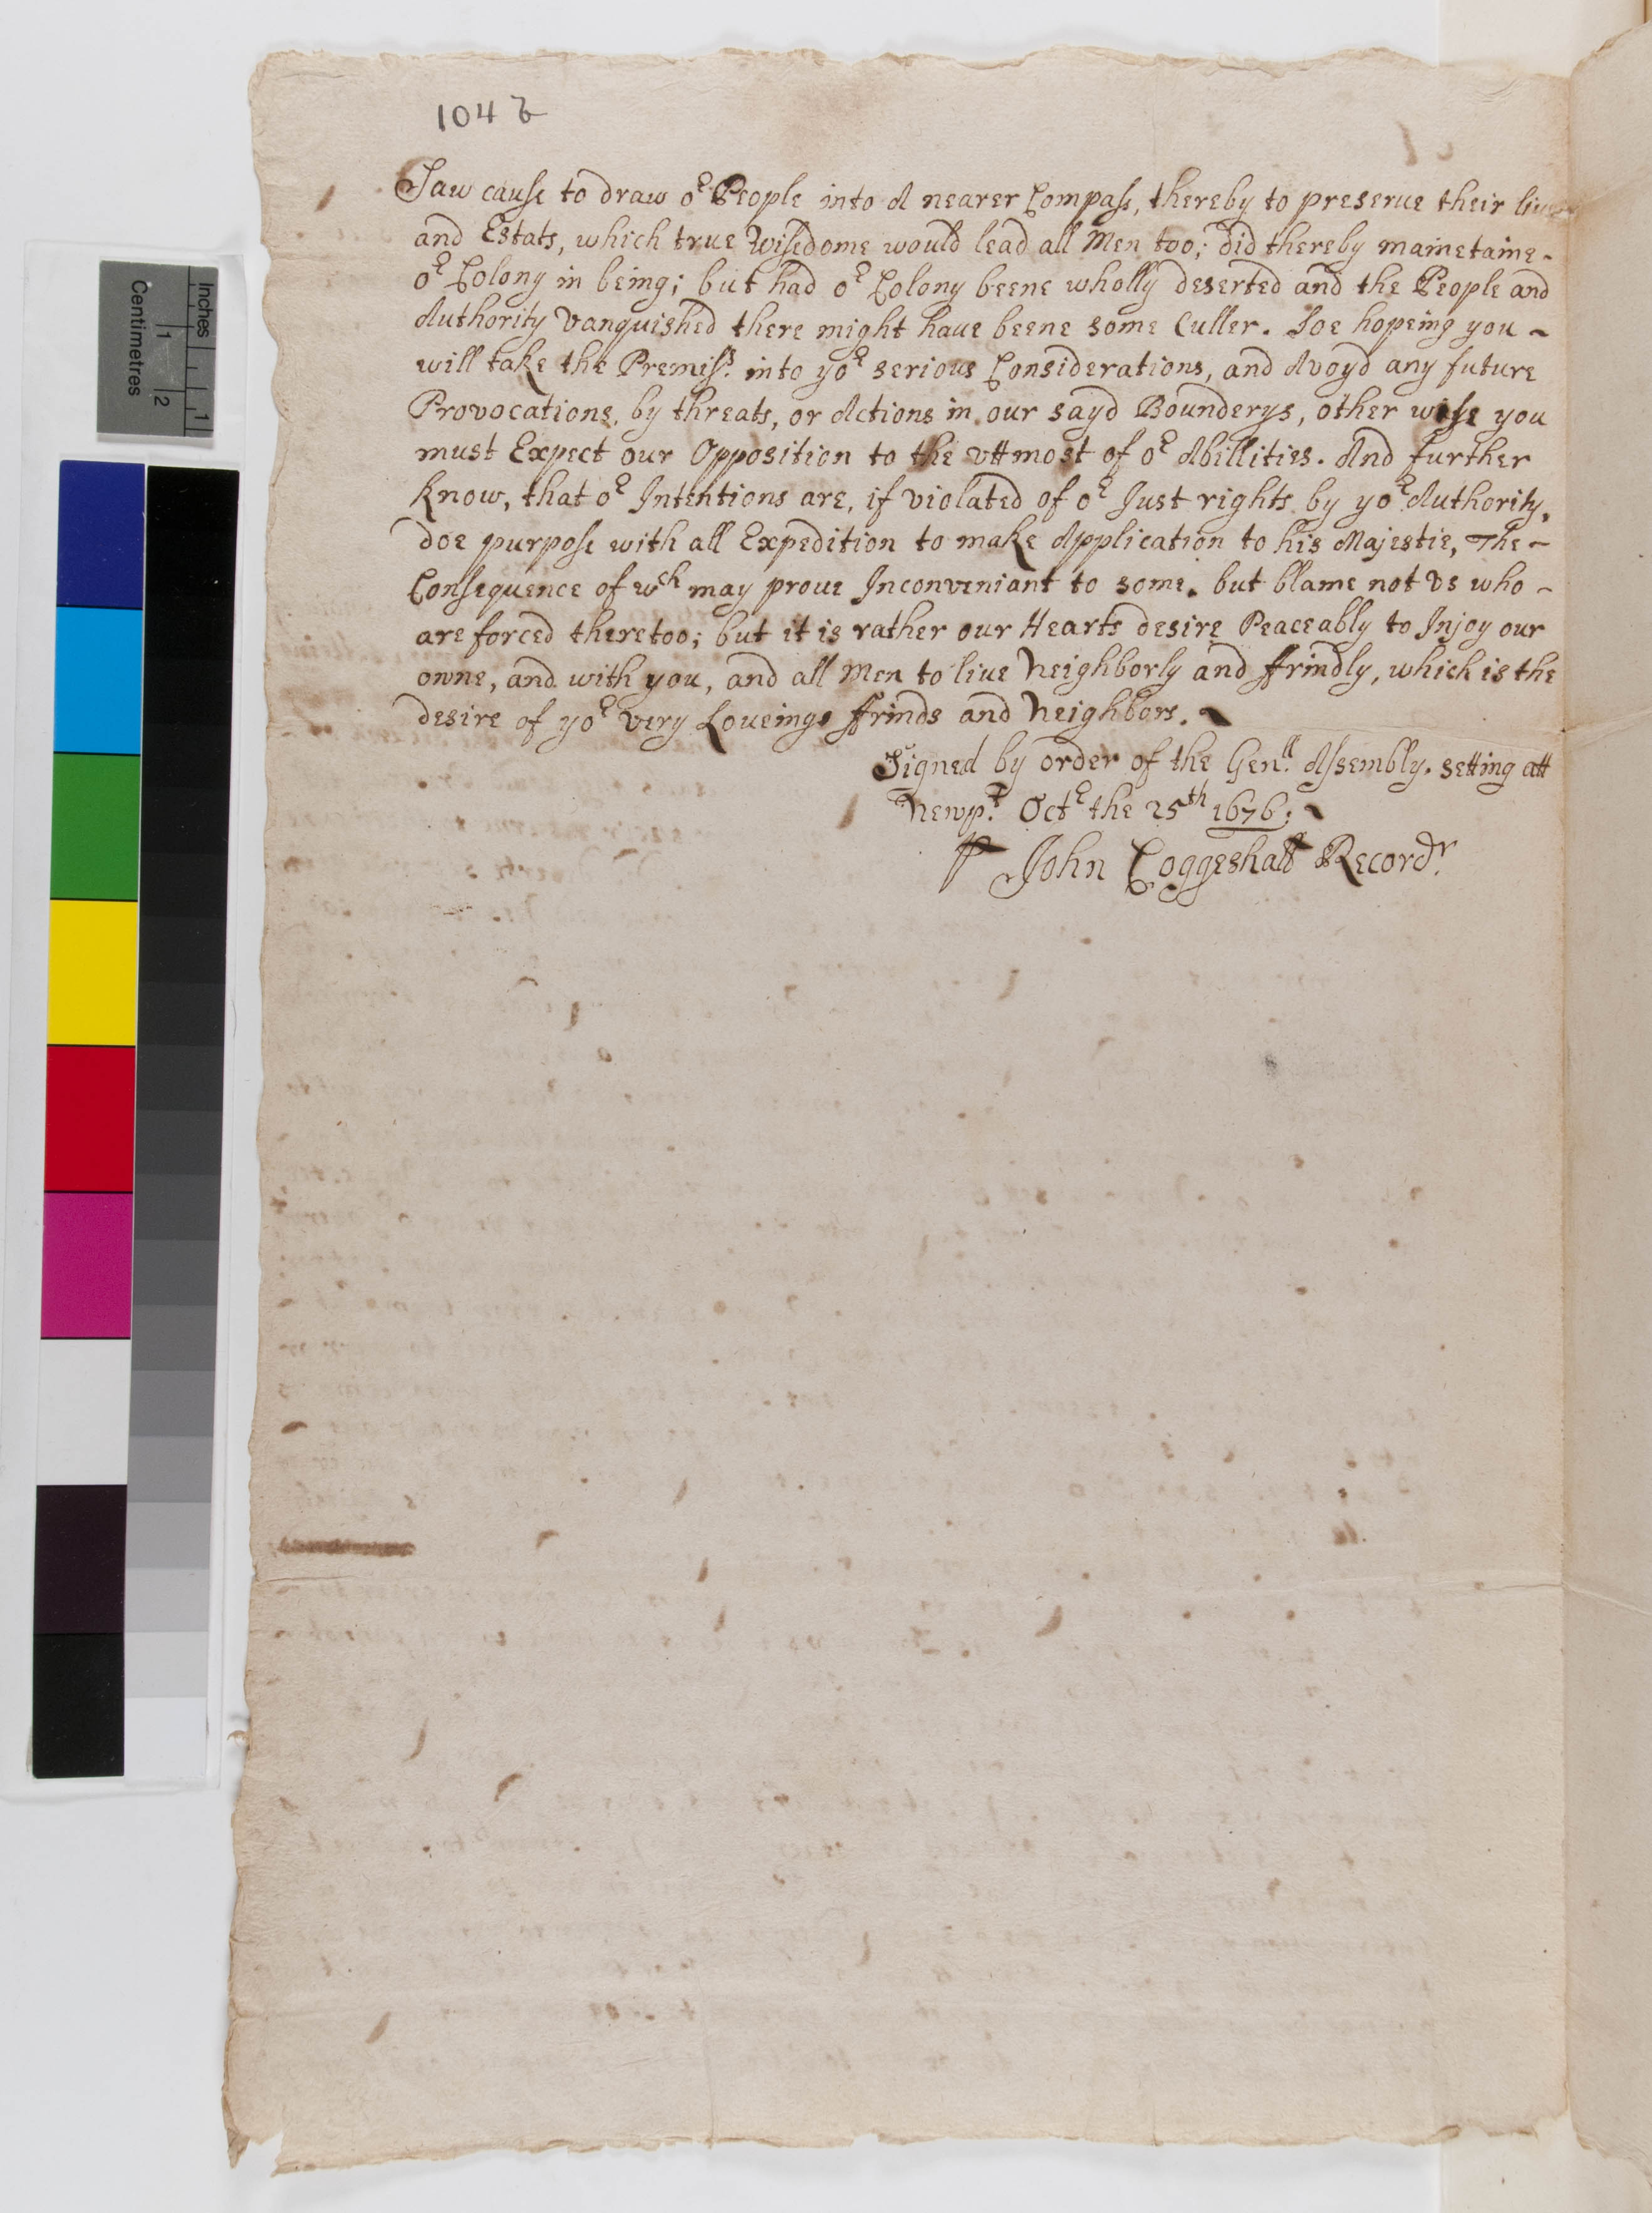 104 b
Saw cause to draw oʳ People into A nearer Compass, thereby to preserue their liues
and Estats, which true Wisedome would lead all Men too; did thereby mainetaine -
oʳ Colony in being; but had oʳ Colony beene wholly deserted and the People and
Authority vanquished there might haue beene some Culler. Soe hopeing you ~
will take the Premisˢ. into yoʳ serious Considerations, and Avoyd any future
Provocations, by threats, or Actions in our sayd Bounderys, other wise you
must Expect our Opposition to the vttmost of oʳ Abillities. And further
know, that oʳ Intentions are, if violated of oʳ Just rights by yoʳ Authority,
doe purpose with all Expedition to make Application to his Majestie, The ~
Consequence of wᶜʰ may proue Inconveniant to some. but blame not vs who ~
are forced theretoo; but it is rather our Hearts desire Peaceably to Injoy our
owne, and with you, and all Men to liue Neighborly and ffrindly, which is the
desire of yoʳ very Loueinge ffrinds and Neighbors. ~
Signed by order of the Genˡˡ. Assembly. setting att
Newpᵗ. Octʳ the 25ᵗʰ 1676: ~
ꝑ John Coggeshall Recordʳ.
Inches
1
Centimetres
1 2